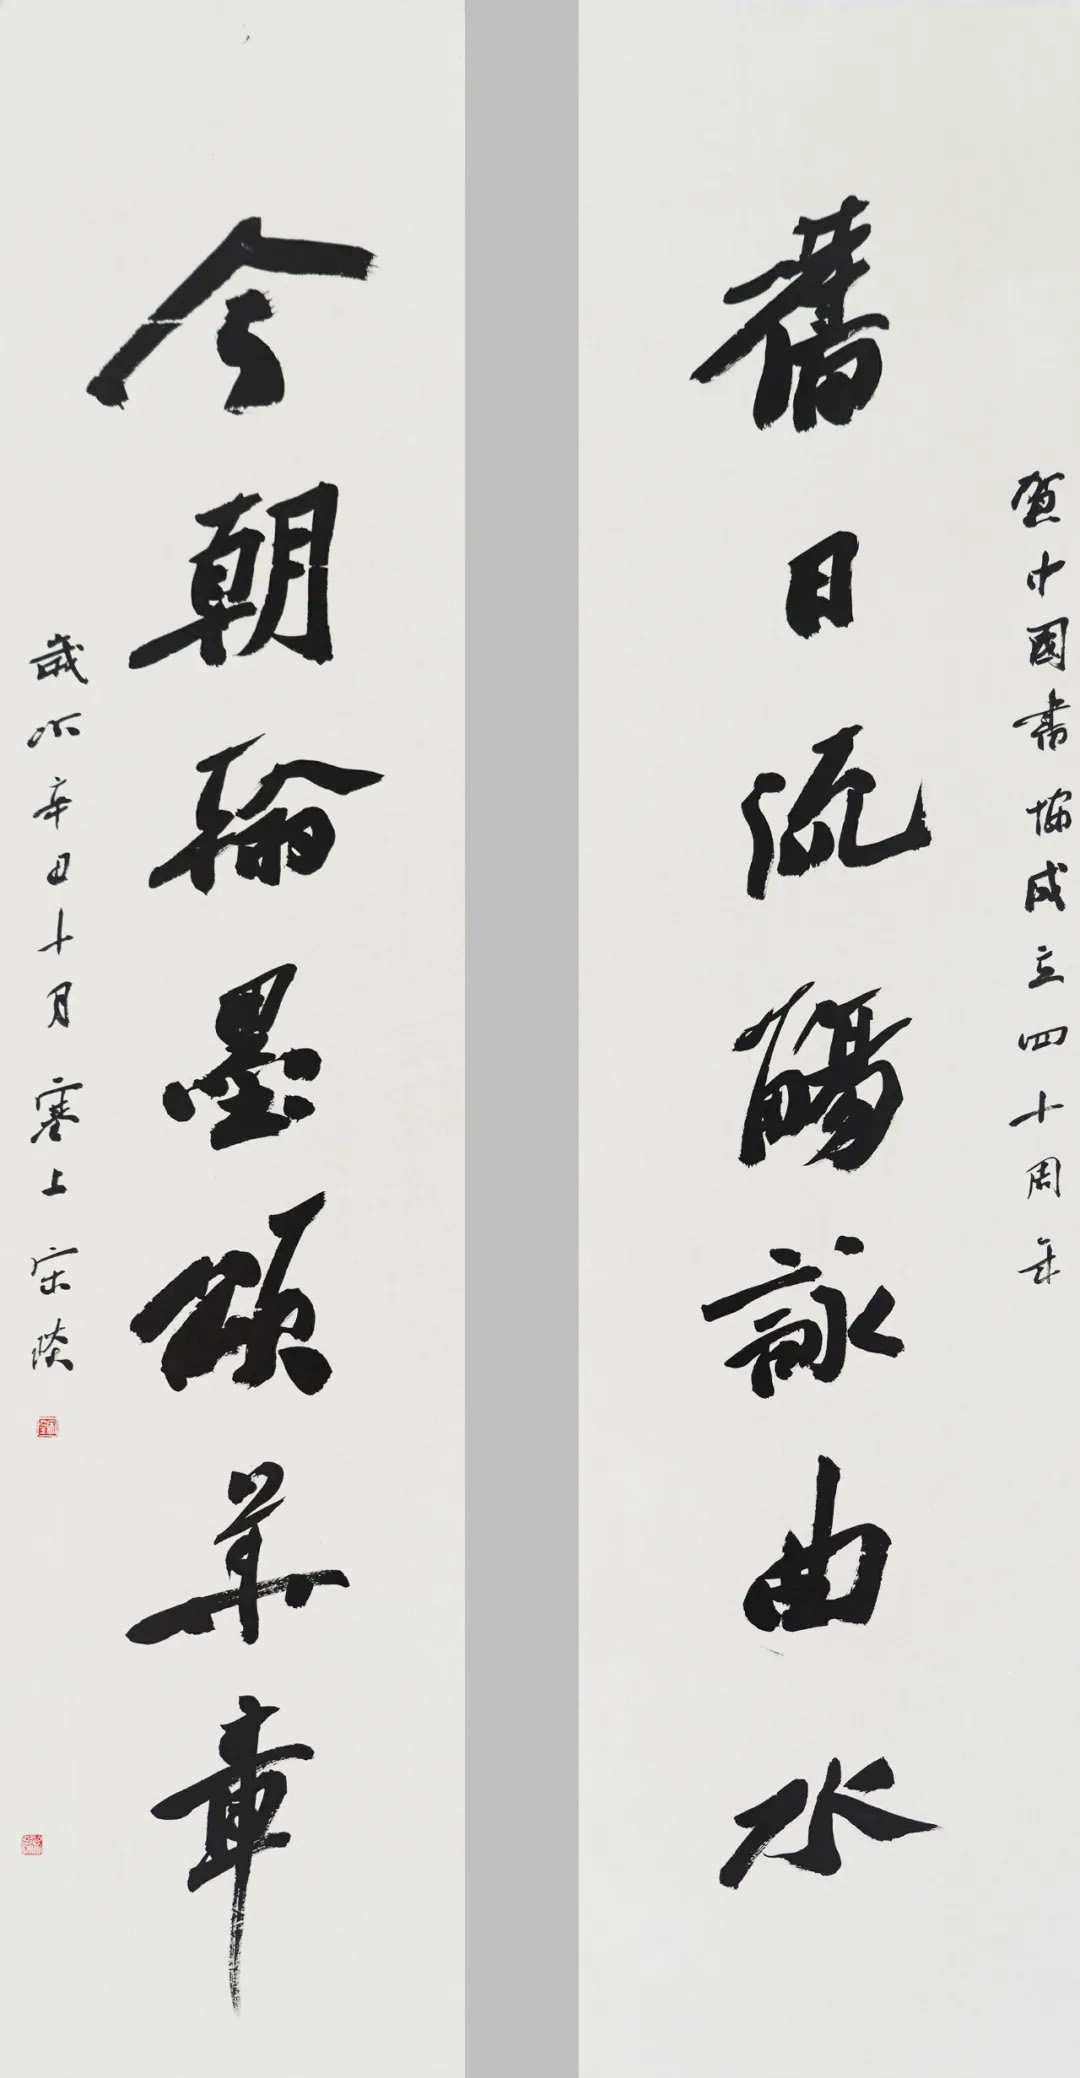 賀中國書協成立四十周年
舊日流觴詠曲水
今朝翰墨頌華章
歲次辛丑十月寒上宋琰